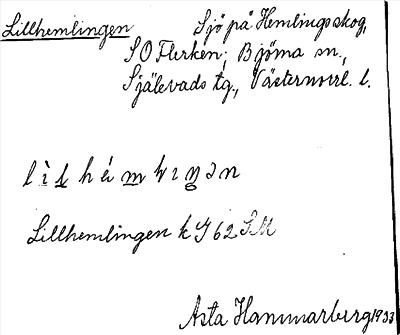 Lillhemlingen Sjö på Hemlingsskog,
SO Flerken; Björna sn.,
Själevads tg., Västernorrl. l.
Lillhemlingen k J 62 SM
Asta Hammarberg 1933